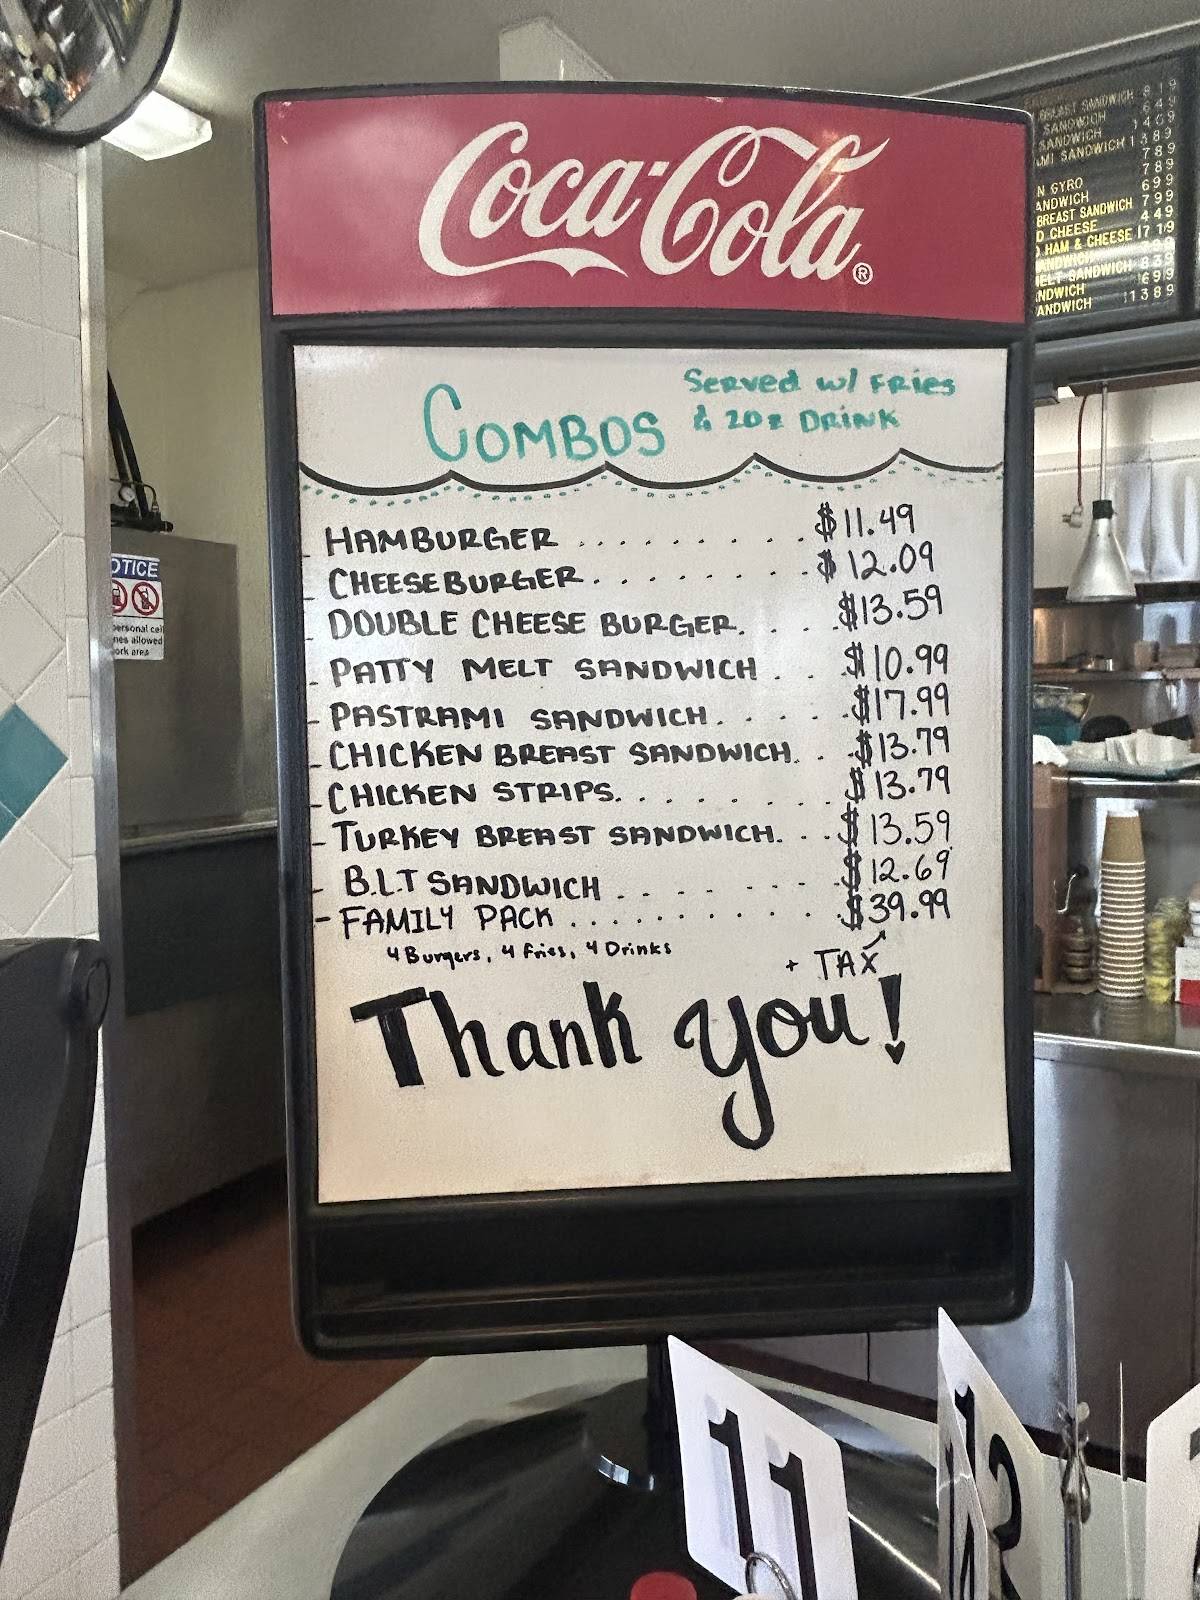 Coca-Cola®
Combos
Served w/ Fries
& 20z Drink
- HAMBURGER .......... $11.49
- CHEESEBURGER......... $12.09
- DOUBLE CHEESE BURGER.... $13.59
- PATTY MELT SANDWICH ... $10.99
- PASTRAMI SANDWICH..... $17.99
- CHICKEN BREAST SANDWICH... $13.79
- CHICKEN STRIPS........ $13.79
- TURKEY BREAST SANDWICH... $13.59
- B.L.T SANDWICH ....... $12.69
- FAMILY PACK .......... $39.99
4 Burgers, 4 Fries, 4 Drinks
+ TAX
Thank you!
OTICE
personal cel
nes allowed
ork area
BREAST SANDWICH 8 19
SANDWICH 6 49
SANDWICH 14 69
MI SANDWICH 13 89
7 89
N GYRO 7 89
ANDWICH 6 99
BREAST SANDWICH 7 99
D CHEESE 4 49
HAM & CHEESE 17 19
ANDWICH
ELT SANDWICH 8 39
NDWICH 6 99
ANDWICH 13 89
11
12
14